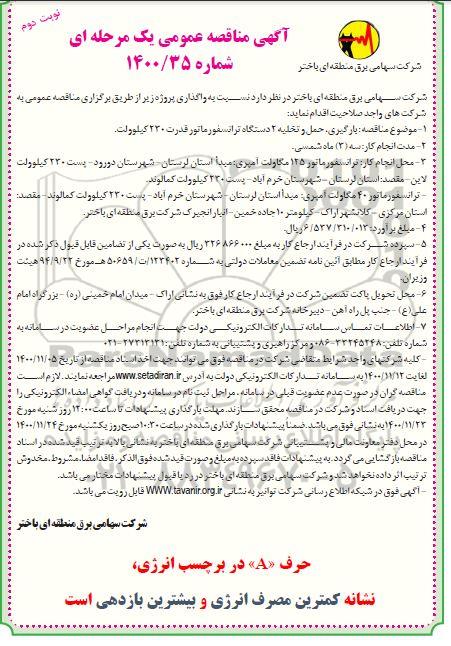 نوبت دوم
آگهی مناقصه عمومی یک مرحله ای
شماره ۱۴۰۰/۳۵
شرکت سهامی برق منطقه ای باختر
شرکت ســـهامی برق منطقه ای باختر در نظر دارد نسبت به واگذاری پروژه زیر از طریق برگزاری مناقصه عمومی به
شرکت های واجد صلاحیت اقدام نماید:
۱- موضوع مناقصه: بارگیری، حمل و تخلیه ۲ دستگاه ترانسفورماتور قدرت ۲۳۰ کیلوولت.
۲- مدت انجام کار: سه (۳) ماه شمسی.
۳- محل انجام کار: ترانسفورماتور ۱۲۵ مگاولت آمپری: مبدأ استان لرستان - شهرستان دورود - پست ۲۳۰ کیلوولت
لاین - مقصد: استان لرستان - شهرستان خرم آباد - پست ۲۳۰ کیلوولت کمالوند.
- ترانسفورماتور ۴۰ مگاولت آمپری: مبدأ استان لرستان - شهرستان خرم آباد - پست ۲۳۰ کیلوولت کمالوند - مقصد:
استان مرکزی - کلانشهر اراک - کیلومتر ۱۰ جاده خمین - انبار انجیرک شرکت برق منطقه ای باختر.
۴- مبلغ برآورد: ۶/۵۳۷/۳۱۰/۰۱۳ ریال.
۵- سپرده شــرکت در فرآیند ارجاع کار به مبلغ ۳۲۶۸۶۶۰۰۰ ریال به صورت یکی از تضامین قابل قبول ذکر شده در
فرآیند ارجاع کار مطابق آئین نامه تضمین معاملات دولتی به شــماره ۱۲۳۴۰۲/ت۵۰۶۵۹ هـ مورخ ۹۴/۹/۲۲ هیئت
وزیران.
۶- محل تحویل پاکت تضمین شرکت در فرآیند ارجاع کار فوق به نشانی اراک - میدان امام خمینی (ره) - بزرگراه امام
علی (ع) - جنب پل راه آهن - دبیرخانه شرکت برق منطقه ای باختر.
۷- اطلاعـــات تمـاس سـامانه تـدارکات الکترونیکـی دولت جهـت انجام مراحـل عضویت در سـامانه به
شماره تلفن: ۳۳۲۴۵۲۴۸-۰۸۶ و مرکز راهبری و پشتیبانی به شماره تلفن: ۲۷۳۱۳۱۳۱-۰۲۱
- کلیه شرکتهای واجد شرایط متقاضی شرکت در مناقصه فوق می توانند جهت اخذ اسناد مناقصه از تاریخ ۱۴۰۰/۱۱/۰۵
لغایت ۱۴۰۰/۱۱/۱۲ به سـامانه تـدارکات الکترونیکی دولت به آدرس www.setadiran.ir مراجعه نمایند. لازم اسـت
مناقصه گران در صورت عدم عضویت قبلی در سامانه، مراحل ثبت نام در سامانه و دریافت گواهی امضاء الکترونیکی را
جهت دریافت اسناد و شرکت در مناقصه محقق سـازند. مهلت بارگذاری پیشنهادات تا ساعت ۱۲:۰۰ روز شنبه مورخ
۱۴۰۰/۱۱/۲۳ به نشانی فوق می باشد. ضمنا پیشنهادات بارگذاری شده در ساعت ۱۰:۳۰ صبح روز یکشنبه مورخ ۱۴۰۰/۱۱/۲۴
در محل دفتر معاونت مالی و پشــتیبانی شرکت سهامی برق منطقه ای باختر به نشانی بالا به ترتیب قید شده در اسناد
مناقصه بازگشایی می گردد. به پیشنهادات فاقد سپرده به مبلغ و صورت قید شده فوق الذکر، فاقد امضا، مشروط، مخدوش
ترتیب اثر داده نخواهد شد و شرکت سهامی برق منطقه ای باختر در رد یا قبول پیشنهادات مختار می باشد.
- آگهی فوق در شبکه اطلاع رسانی شرکت توانیر به نشانی WWW.tavanir.org.ir قابل رویت می باشد.
شرکت سهامی برق منطقه ای باختر
حرف «A» در برچسب انرژی،
نشانه کمترین مصرف انرژی و بیشترین بازدهی است